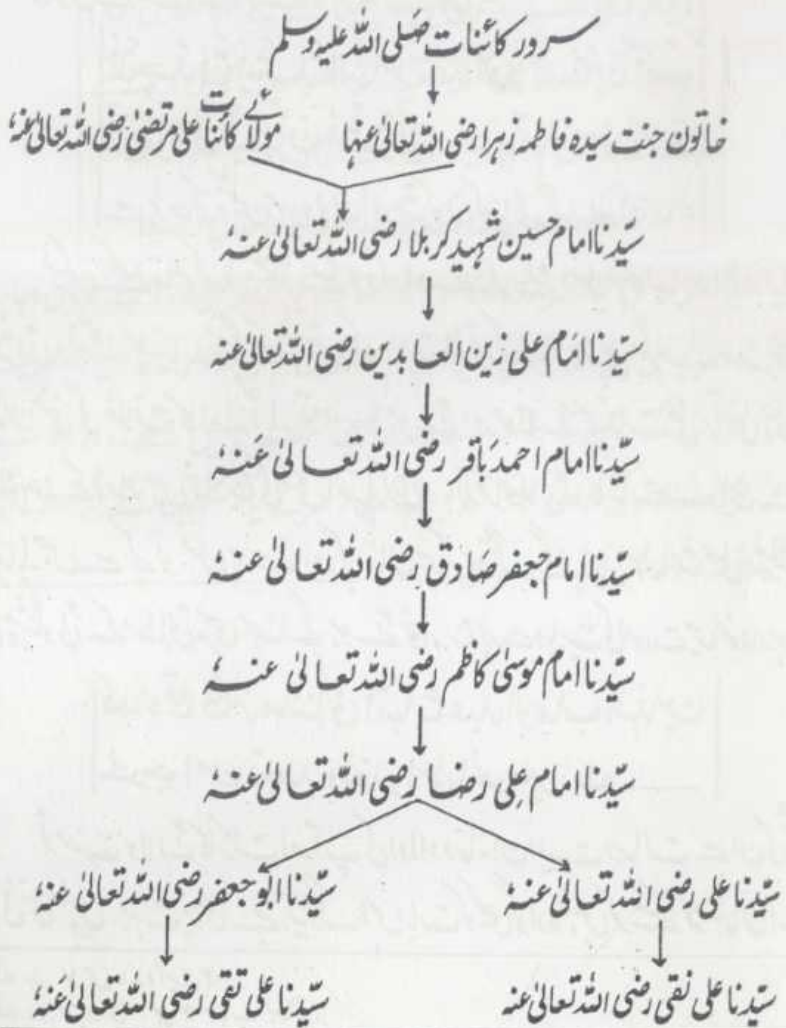 سرور کائنات صَلی اللہ علیہ وسلم
خاتون جنت سیدہ فاطمہ زہرا رضی اللہ تعالیٰ عنہا مولائے کائنات علی مرتضیٰ رضی اللہ تعالیٰ عنہٗ
سیّدنا امام حسین شہید کربلا رضی اللہ تعالیٰ عنہٗ
سیّدنا امَام علی زین العابدین رضی اللہ تعالیٰ عنہ
سیّدنا امام احمد بَاقر رضی اللہ تعالیٰ عَنہٗ
سیّدنا امام جعفر صَادق رضی اللہ تعالیٰ عنہٗ
سیّدنا امام موسیٰ کاظم رضی اللہ تعالیٰ عنہٗ
سیّدنا امام علِی رضا رضی اللہ تعالیٰ عنہٗ
سیّدنا علی رضی اللہ تعالیٰ عنہٗ سیّدنا ابو جعفر رضی اللہ تعالیٰ عنہٗ
سیّدنا علی نقی رضی اللہ تعالیٰ عنہ سیّدنا علی تقی رضی اللہ تعالیٰ عَنہٗ